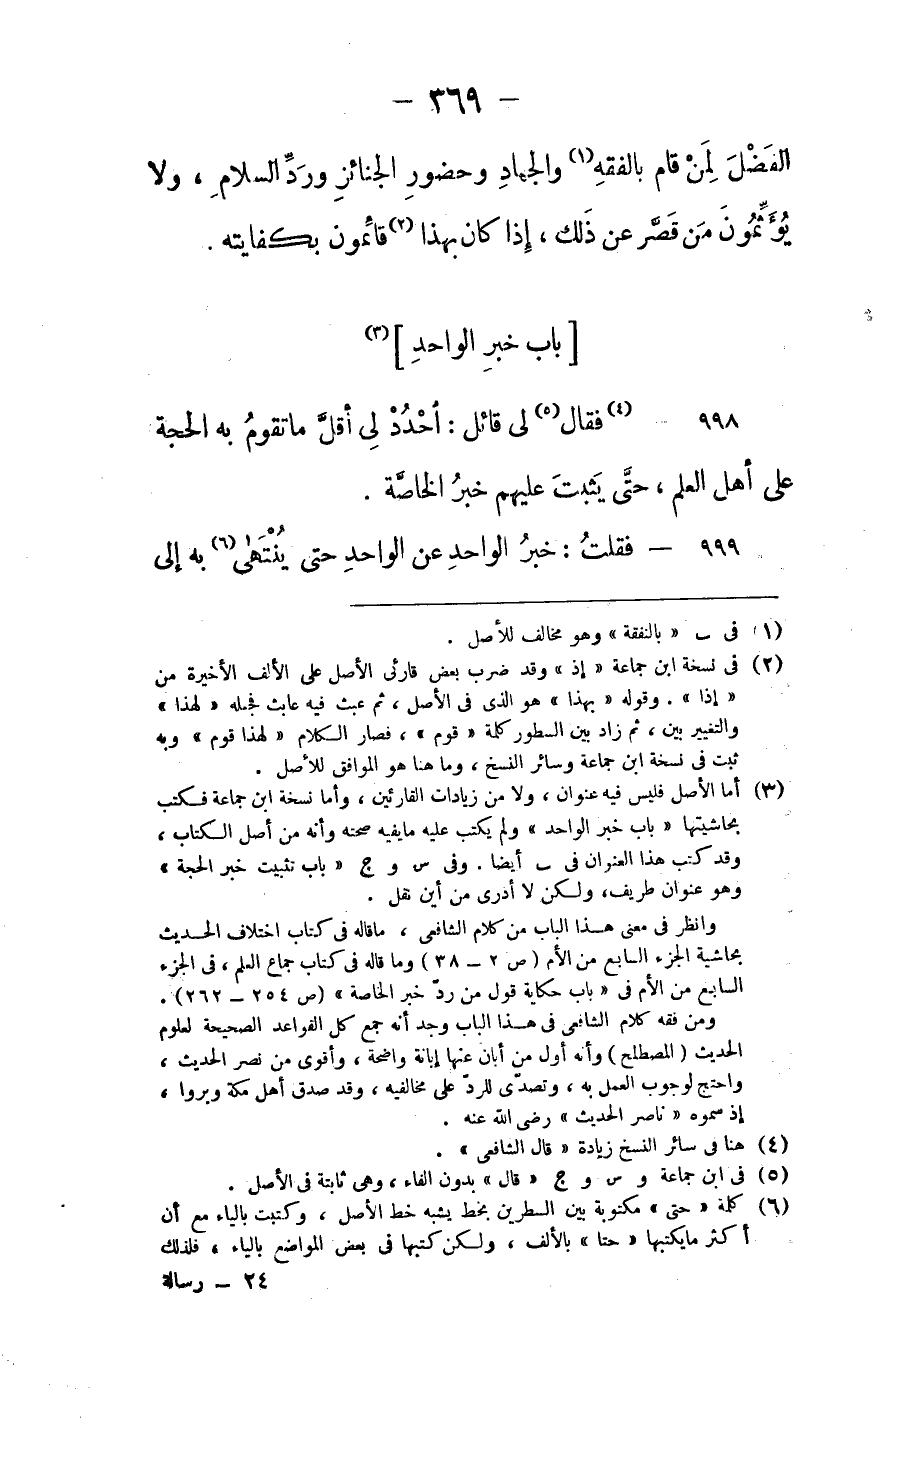 — ٣٦٩ —
الفَضْلَ لِمَنْ قام بالفقهِ(١) والجهادِ وحضورِ الجنائزِ وردِّ السلامِ ، ولا
يُؤَثِّمُونَ مَن قصَّر عن ذَلك ، إِذا كان بهذا(٢) قائمون بكفايته .
[ باب خبرِ الواحدِ ](٣)
٩٩٨ (٤) فقال(٥) لى قائل : اُحْدُدْ لِى أقلَّ ماتقومُ به الحجة
على أهل العلم ، حتَّى يَثبتَ عليهم خبرُ الخاصَّة .
٩٩٩ — فقلتُ : خبرُ الواحدِ عن الواحدِ حتى يُنْتَهَى(٦) به إلى
(١) فى ب « بالنفقة » وهو مخالف للأصل .
(٢) فى نسخة ابن جماعة « إذ » وقد ضرب بعض قارئى الأصل على الألف الأخيرة من
« إذا » . وقوله « بهذا » هو الذى فى الأصل ، ثم عبث فيه عابث فجعله « لهذا »
والتغيير بين ، ثم زاد بين السطور كلمة « قوم » ، فصار الكلام « لهذا قوم » وبه
ثبت فى نسخة ابن جماعة وسائر النسخ ، وما هنا هو الموافق للأصل .
(٣) أما الأصل فليس فيه عنوان ، ولا من زيادات القارئين ، وأما نسخة ابن جماعة فكتب
بحاشيتها « باب خبر الواحد » ولم يكتب عليه مايفيد صحته وأنه من أصل الكتاب ،
وقد كتب هذا العنوان فى ب أيضا . وفى س و ج « باب تثبيت خبر الحجة »
وهو عنوان طريف، ولكن لا أدرى من أين نقل .
وانظر فى معنى هذا الباب من كلام الشافعى ، ماقاله فى كتاب اختلاف الحديث
بحاشية الجزء السابع من الأم ( ص ٢ — ٣٨ ) وما قاله فى كتاب جماع العلم ، فى الجزء
السابع من الأم فى « باب حكاية قول من ردّ خبر الخاصة » (ص ٢٥٤ — ٢٦٢) .
ومن فقه كلام الشافعى فى هذا الباب وجد أنه جمع كل القواعد الصحيحة لعلوم
الحديث ( المصطلح ) وأنه أول من أبان عنها إبانة واضحة ، وأقوى من نصر الحديث ،
واحتج لوجوب العمل به ، وتصدّى للردّ على مخالفيه ، وقد صدق أهل مكة وبروا ،
إذ سموه « ناصر الحديث » رضى الله عنه .
(٤) هنا فى سائر النسخ زيادة « قال الشافعى » .
(٥) فى ابن جماعة و س و ج « قال » بدون الفاء ، وهى ثابتة فى الأصل .
(٦) كلمة « حتى » مكتوبة بين السطرين بخط يشبه خط الأصل ، وكتبت بالياء مع أن
أكثر مايكتبها « حتا » بالألف ، ولكن كتبها فى بعض المواضع بالياء ، فلذلك
٢٤ — رسالة